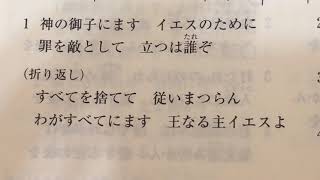 1 神の御子にます　イエスのために
罪を敵として　立つは誰ぞ
たれ
(折り返し)
すべてを捨てて　従いまつらん
わがすべてにます　王なる主イエスよ